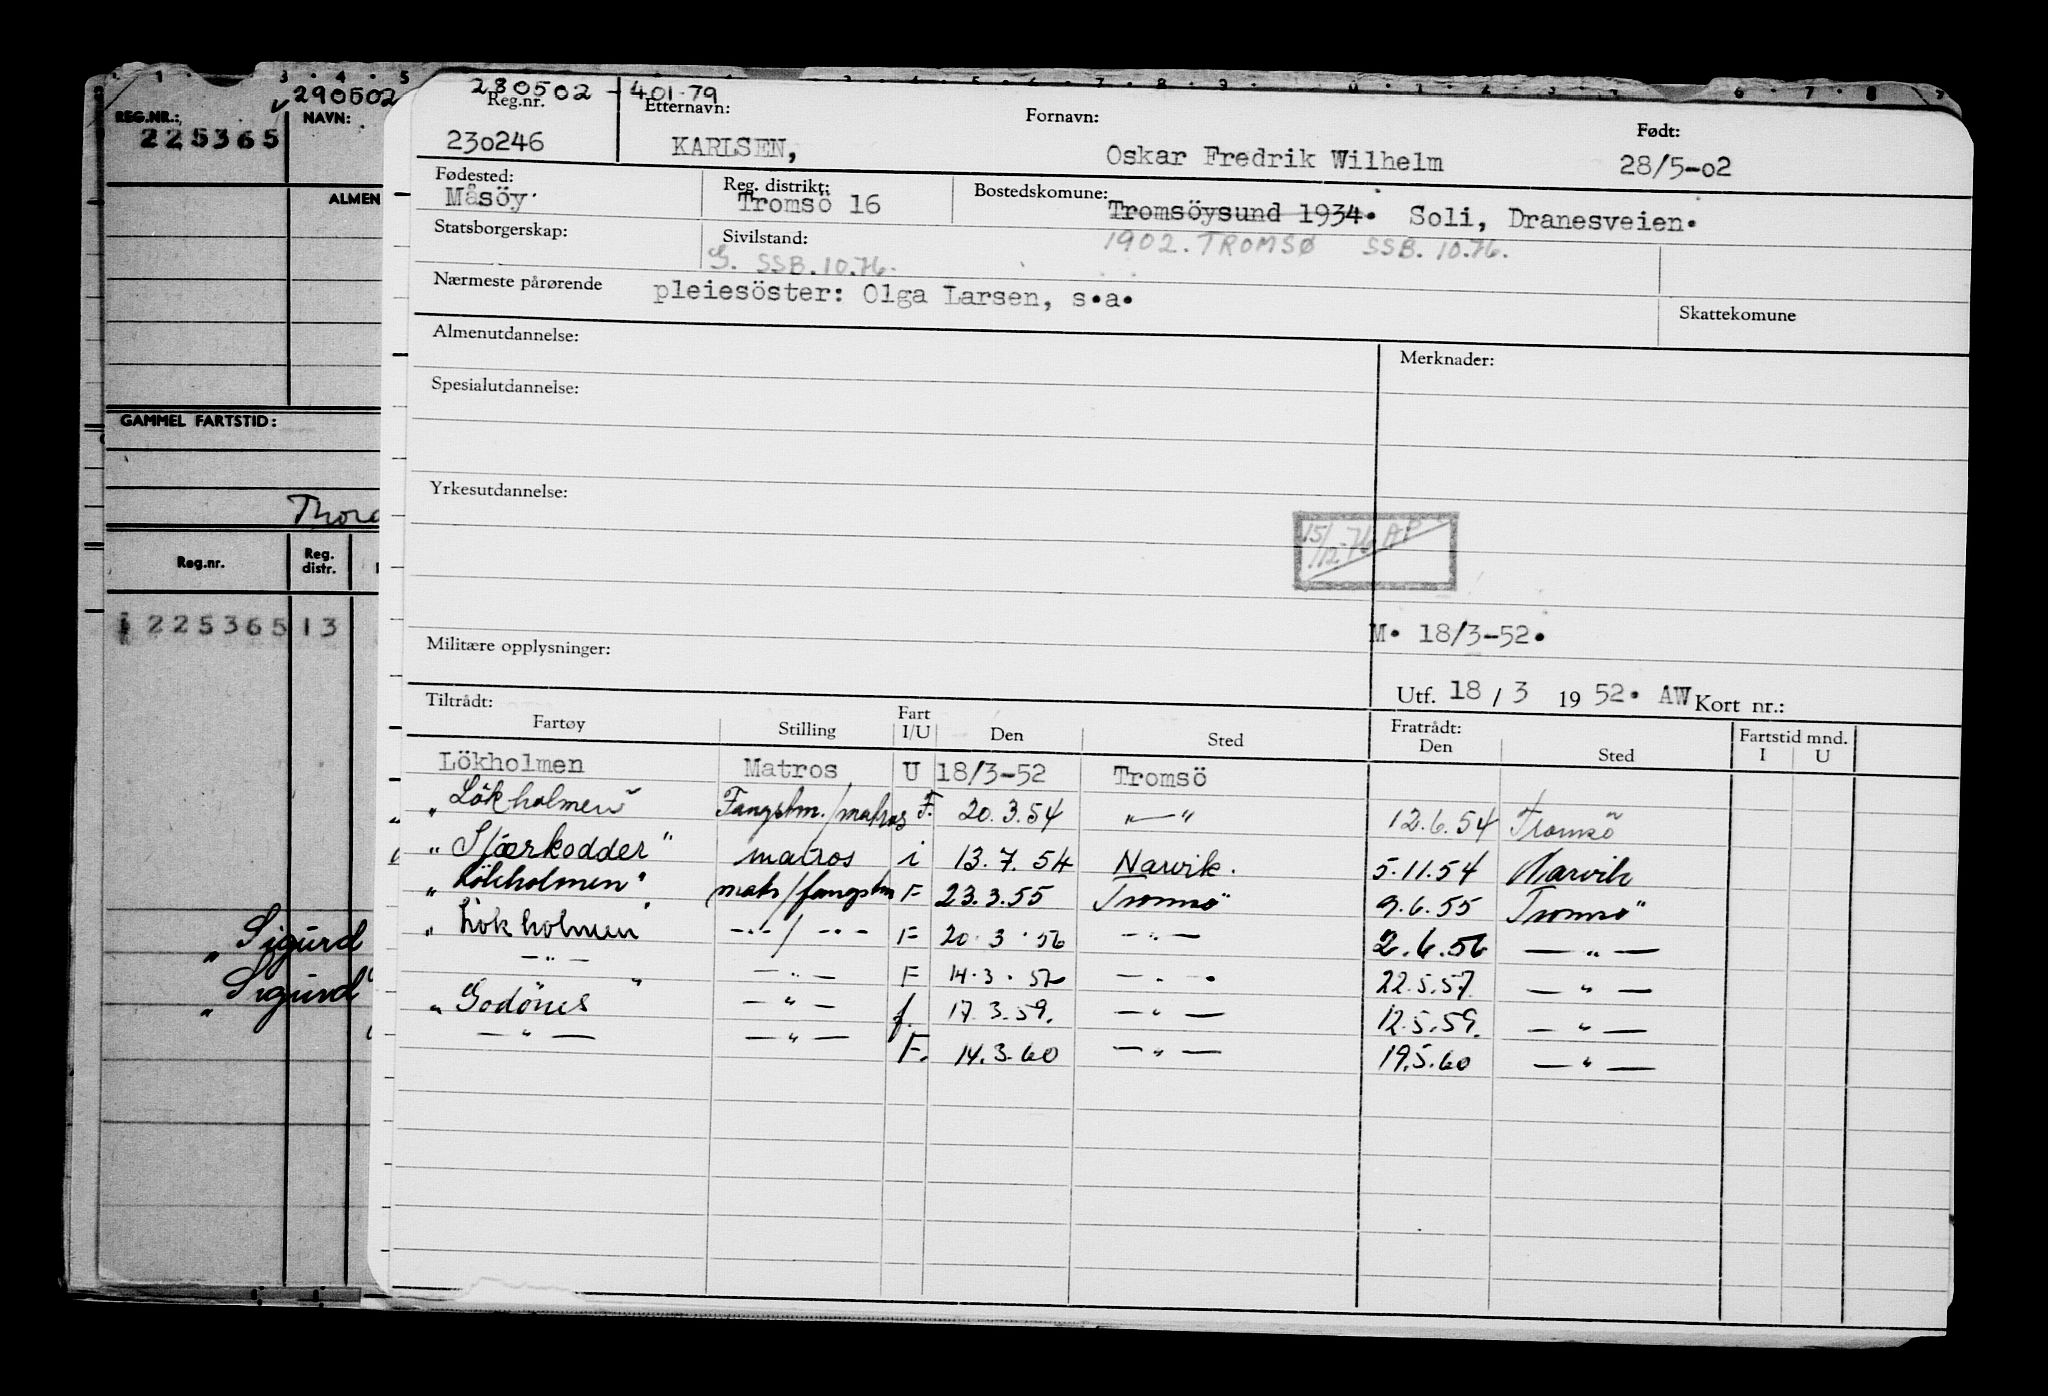 290502
REG.NR.:
225365
NAVN:
ALMEN
GAMMEL FARTSTID:
Reg.nr.
Reg.
distr.
225365 13
„Sigurd
„Sigurd"
280502 - 401.79
Reg.nr. Etternavn: Fornavn: Født:
230246 KARLSEN, Oskar Fredrik Wilhelm 28/5-02
Fødested: Reg. distrikt: Bostedskomune:
Måsöy. Tromsö 16 Tromsöysund 1934. Soli, Dranesveien.
Statsborgerskap: Sivilstand: 1902. TROMSØ SSB. 10.76.
G. SSB. 10.76.
Nærmeste pårørende pleiesöster: Olga Larsen, s.a.
Skattekomune
Almenutdannelse: Merknader:
Spesialutdannelse:
Yrkesutdannelse:
15/12-76 AP
M. 18/3-52.
Militære opplysninger:
Utf. 18 / 3 19 52. AW Kort nr.:
Tiltrådt: Fart Fratrådt: Fartstid mnd.
Fartøy Stilling I/U Den Sted Den Sted I U
Lökholmen Matros U 18/3-52 Tromsö
„Lökholmen" Fangstm./matros F. 20.3.54 „—" 12.6.54 Tromsö
„Stærkodder" matros i 13.7.54 Narvik. 5.11.54 Narvik
„Lökholmen" matr/fangstm F 23.3.55 Tromsö 9.6.55 Tromsö
„Lökholmen" -"-/-"- F 20.3.56 —"— 2.6.56 —"—
—"— —"— F 14.3.57 —"— 22.5.57 —"—
„Godönes" —"— f. 17.3.59. —"— 12.5.59. —"—
—"— —"— F. 14.3.60 —"— 19.5.60 —"—